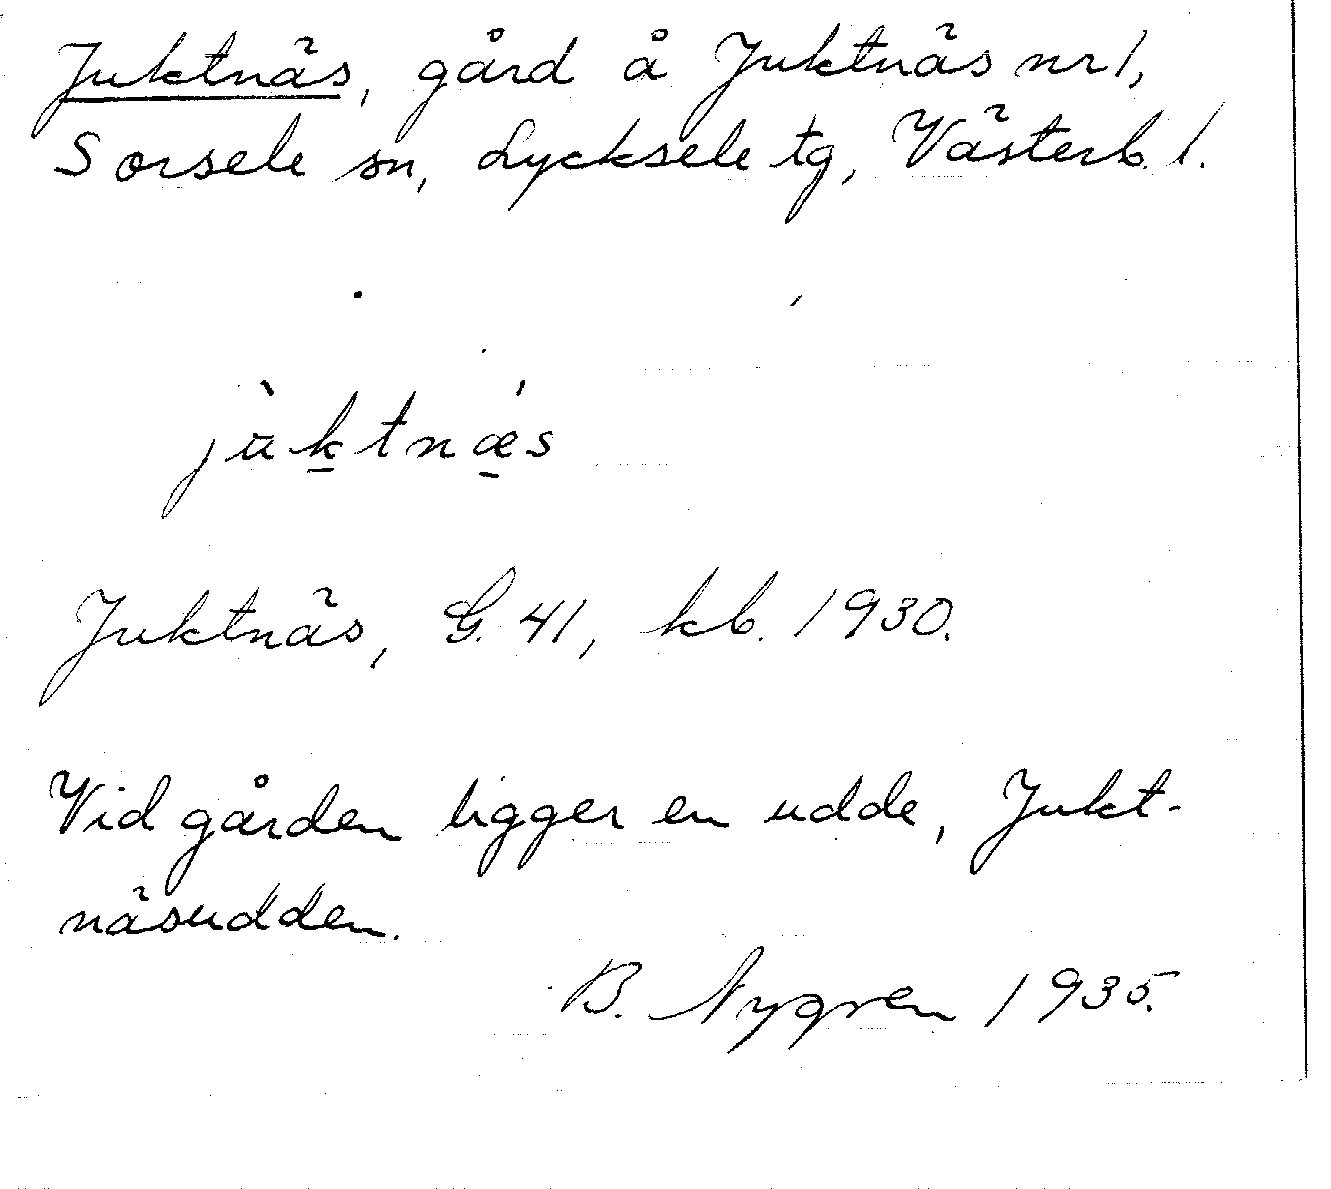 Juktnäs, gård å Juktnäs nr 1,
Sorsele sn, Lycksele tg, Västerb. l.
jùk̠tnǽ̠s
Juktnäs, G. 41, kb. 1930.
Vid gården ligger en udde, Jukt-
näsudden.
B. Nygren 1935.